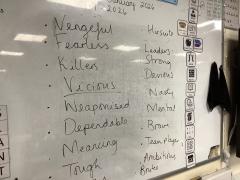 2026
Vengeful
Fearless
Killers
Vicious
Weaponised
Dependable
Meaning
Tough
Leaders
Strong
Devious
Nasty
Mental
Brave
Team Player
Ambitious
Brutes
ANT